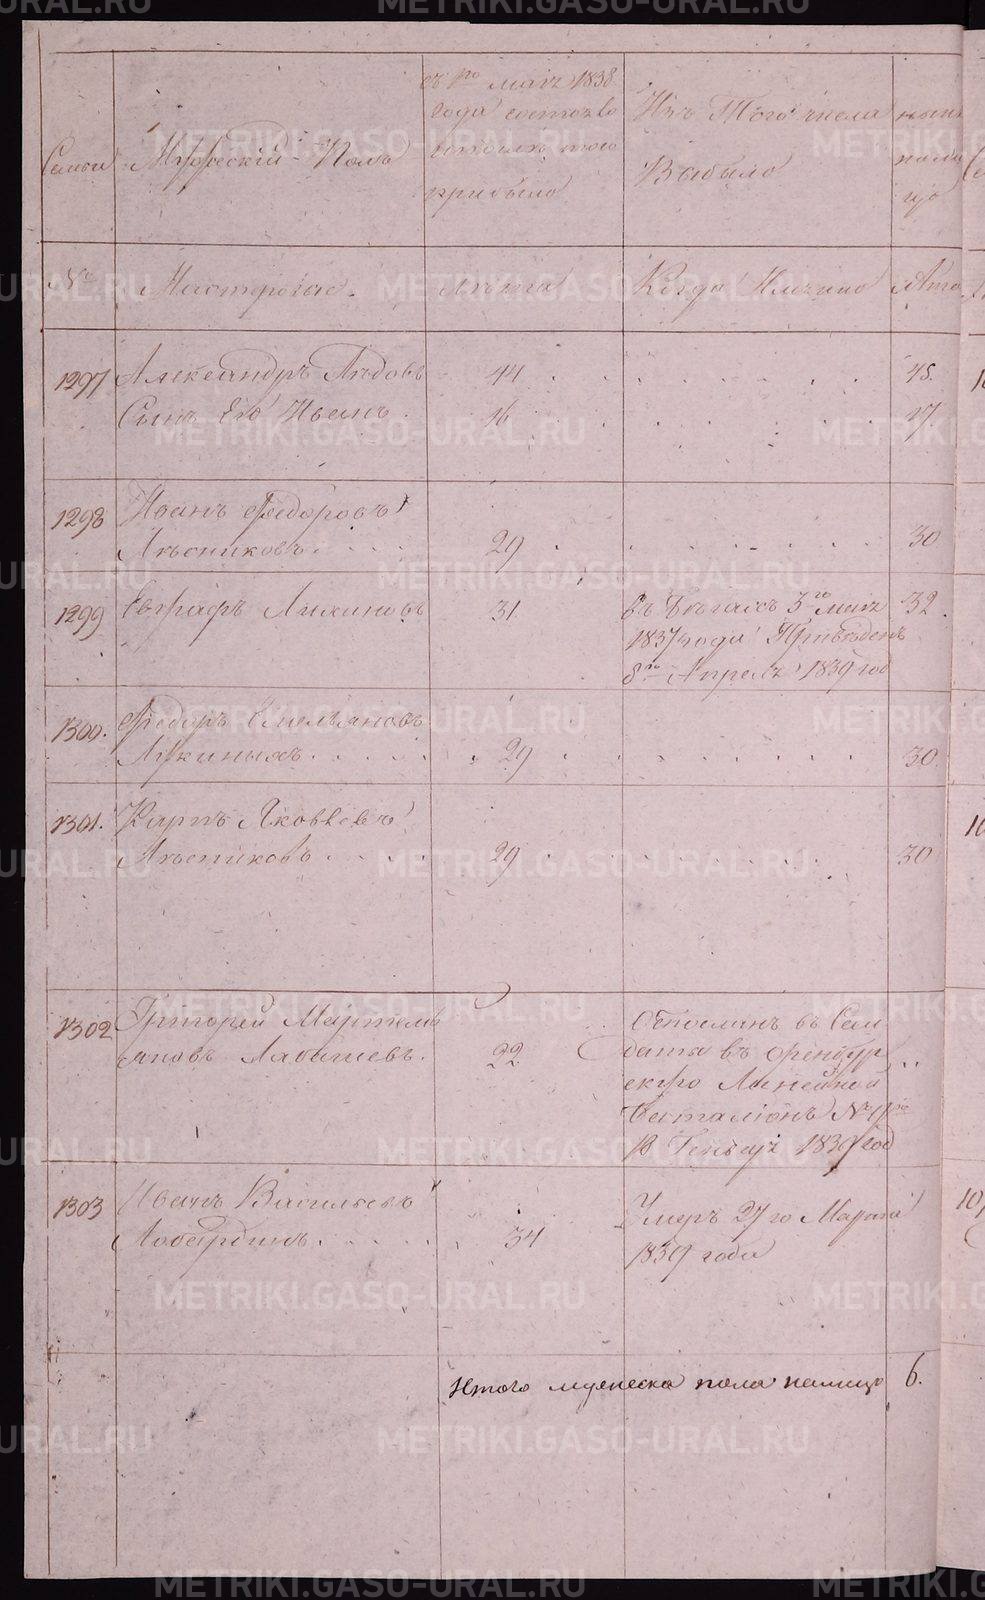 METRIKI.GASO-URAL.RU
Семьи
Мужескій Полъ
съ 1го маія 1838
года состояло
и послѣ того
прибыло
Изъ Того числа
Выбыло
нынѣ
на ли
цо
№
Мастеровые.
Лѣта
Когда Имянно
Лѣта
1297
Александръ
44
45.
Сынъ Его Иванъ
16
17.
1298
Иванъ Федоровъ
Лѣсниковъ
29
30
1299
Евграфъ
31
въ Бѣгахъ 3го маія
32
1837 года Приведенъ
8го Апреля 1839 год
1300.
Федоръ Емельяновъ
29
30
1301.
Карпъ Яковлевъ
Лѣсниковъ
29
30
1302
Григорей Мартемь
яновъ
22
Отосланъ въ Сол
даты въ Оренбур
скіго Линейной
Баталіонъ №
В Генваря 1839 год
1303
Иванъ Васильевъ
34
Умеръ 27го Марта
1839 года
Итого мужеска пола налицо 6.